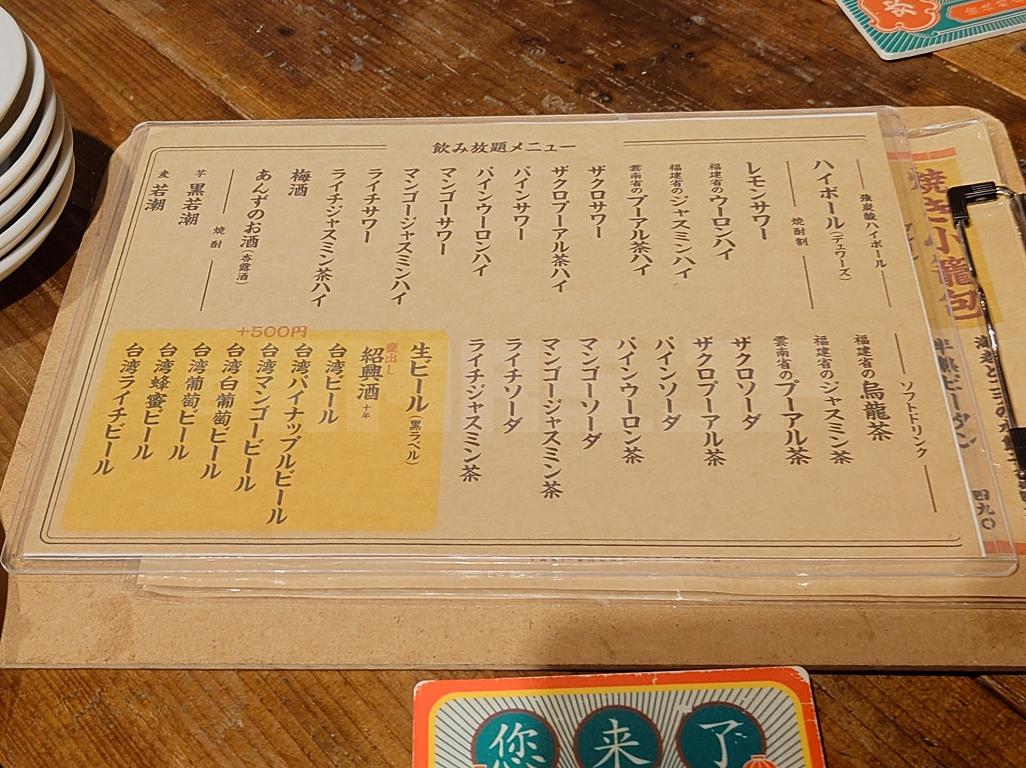 飲み放題メニュー
強炭酸ハイボール
ハイボール(デュワーズ)
焼酎割
レモンサワー
福建省のウーロンハイ
福建省のジャスミンハイ
雲南省のプーアル茶ハイ
ザクロサワー
ザクロプーアル茶ハイ
パインサワー
パインウーロンハイ
マンゴーサワー
マンゴージャスミンハイ
ライチサワー
ライチジャスミン茶ハイ
梅酒
あんずのお酒(杏露酒)
焼酎
芋 黒若潮
麦 若潮
ソフトドリンク
福建省の烏龍茶
福建省のジャスミン茶
雲南省のプーアル茶
ザクロソーダ
ザクロプーアル茶
パインソーダ
パインウーロン茶
マンゴーソーダ
マンゴージャスミン茶
ライチソーダ
ライチジャスミン茶
+500円
生ビール(黒ラベル)
甕出し
紹興酒 十年
台湾ビール
台湾パイナップルビール
台湾マンゴービール
台湾白葡萄ビール
台湾葡萄ビール
台湾蜂蜜ビール
台湾ライチビール
焼き小籠包
四九〇
您来了